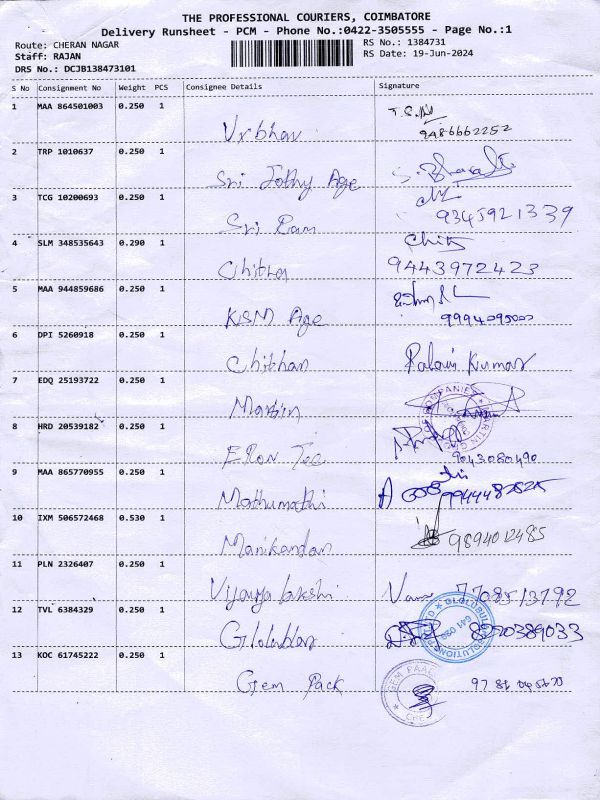 THE PROFESSIONAL COURIERS, COIMBATORE
Delivery Runsheet - PCM - Phone No.:0422-3505555 - Page No.:1
Route: CHERAN NAGAR
Staff: RAJAN
DRS No.: DCJB138473101
RS No.: 1384731
RS Date: 19-Jun-2024
S No Consignment No Weight PCS Consignee Details Signature
1 MAA 864501003 0.250 1
9486662252
2 TRP 1010637 0.250 1 Sri Jothy Age
3 TCG 10200693 0.250 1 Sri Ram 9345921339
4 SLM 348535643 0.290 1 Chitra
9443972423
5 MAA 944859686 0.250 1 KSM Age
6 DPI 5260918 0.250 1 Palani Kumar
7 EDQ 25193722 0.250 1 Martin
8 HRD 20539182 0.250 1 Eron Tec 9043080490
9 MAA 865770955 0.250 1 Mathumathi
10 IXM 506572468 0.530 1 Manikandan 9894012485
11 PLN 2326407 0.250 1 7708513792
12 TVL 6384329 0.250 1 8220389033
13 KOC 61745222 0.250 1 Gem Pack